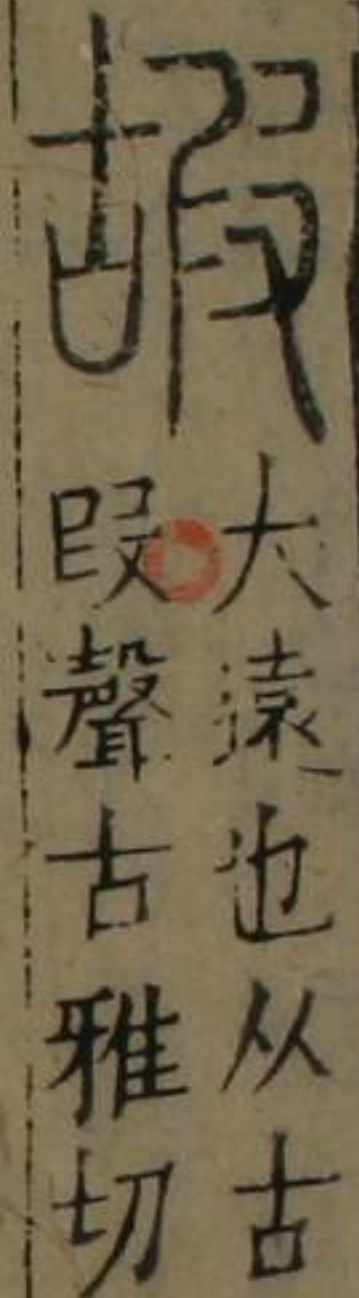 嘏
大遠也从古
叚聲古雅切